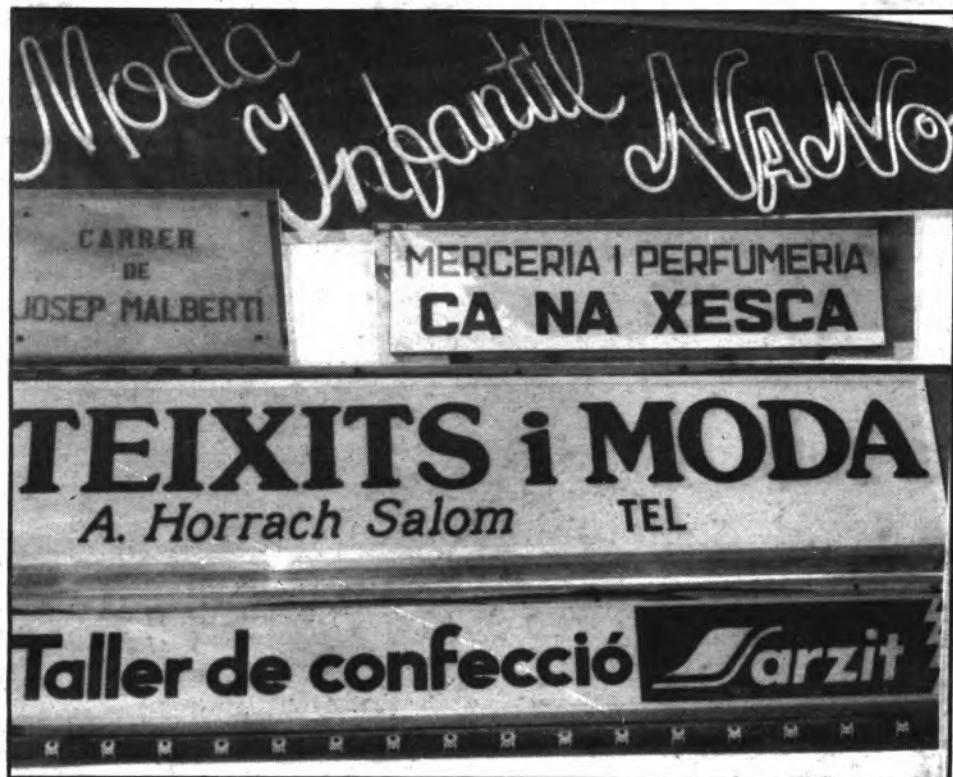 Moda
Infantil
NANO
CARRER
DE
JOSEP MALBERTI
MERCERIA I PERFUMERIA
CA NA XESCA
TEIXITS i MODA
A. Horrach Salom TEL
Taller de confecció Sarzit